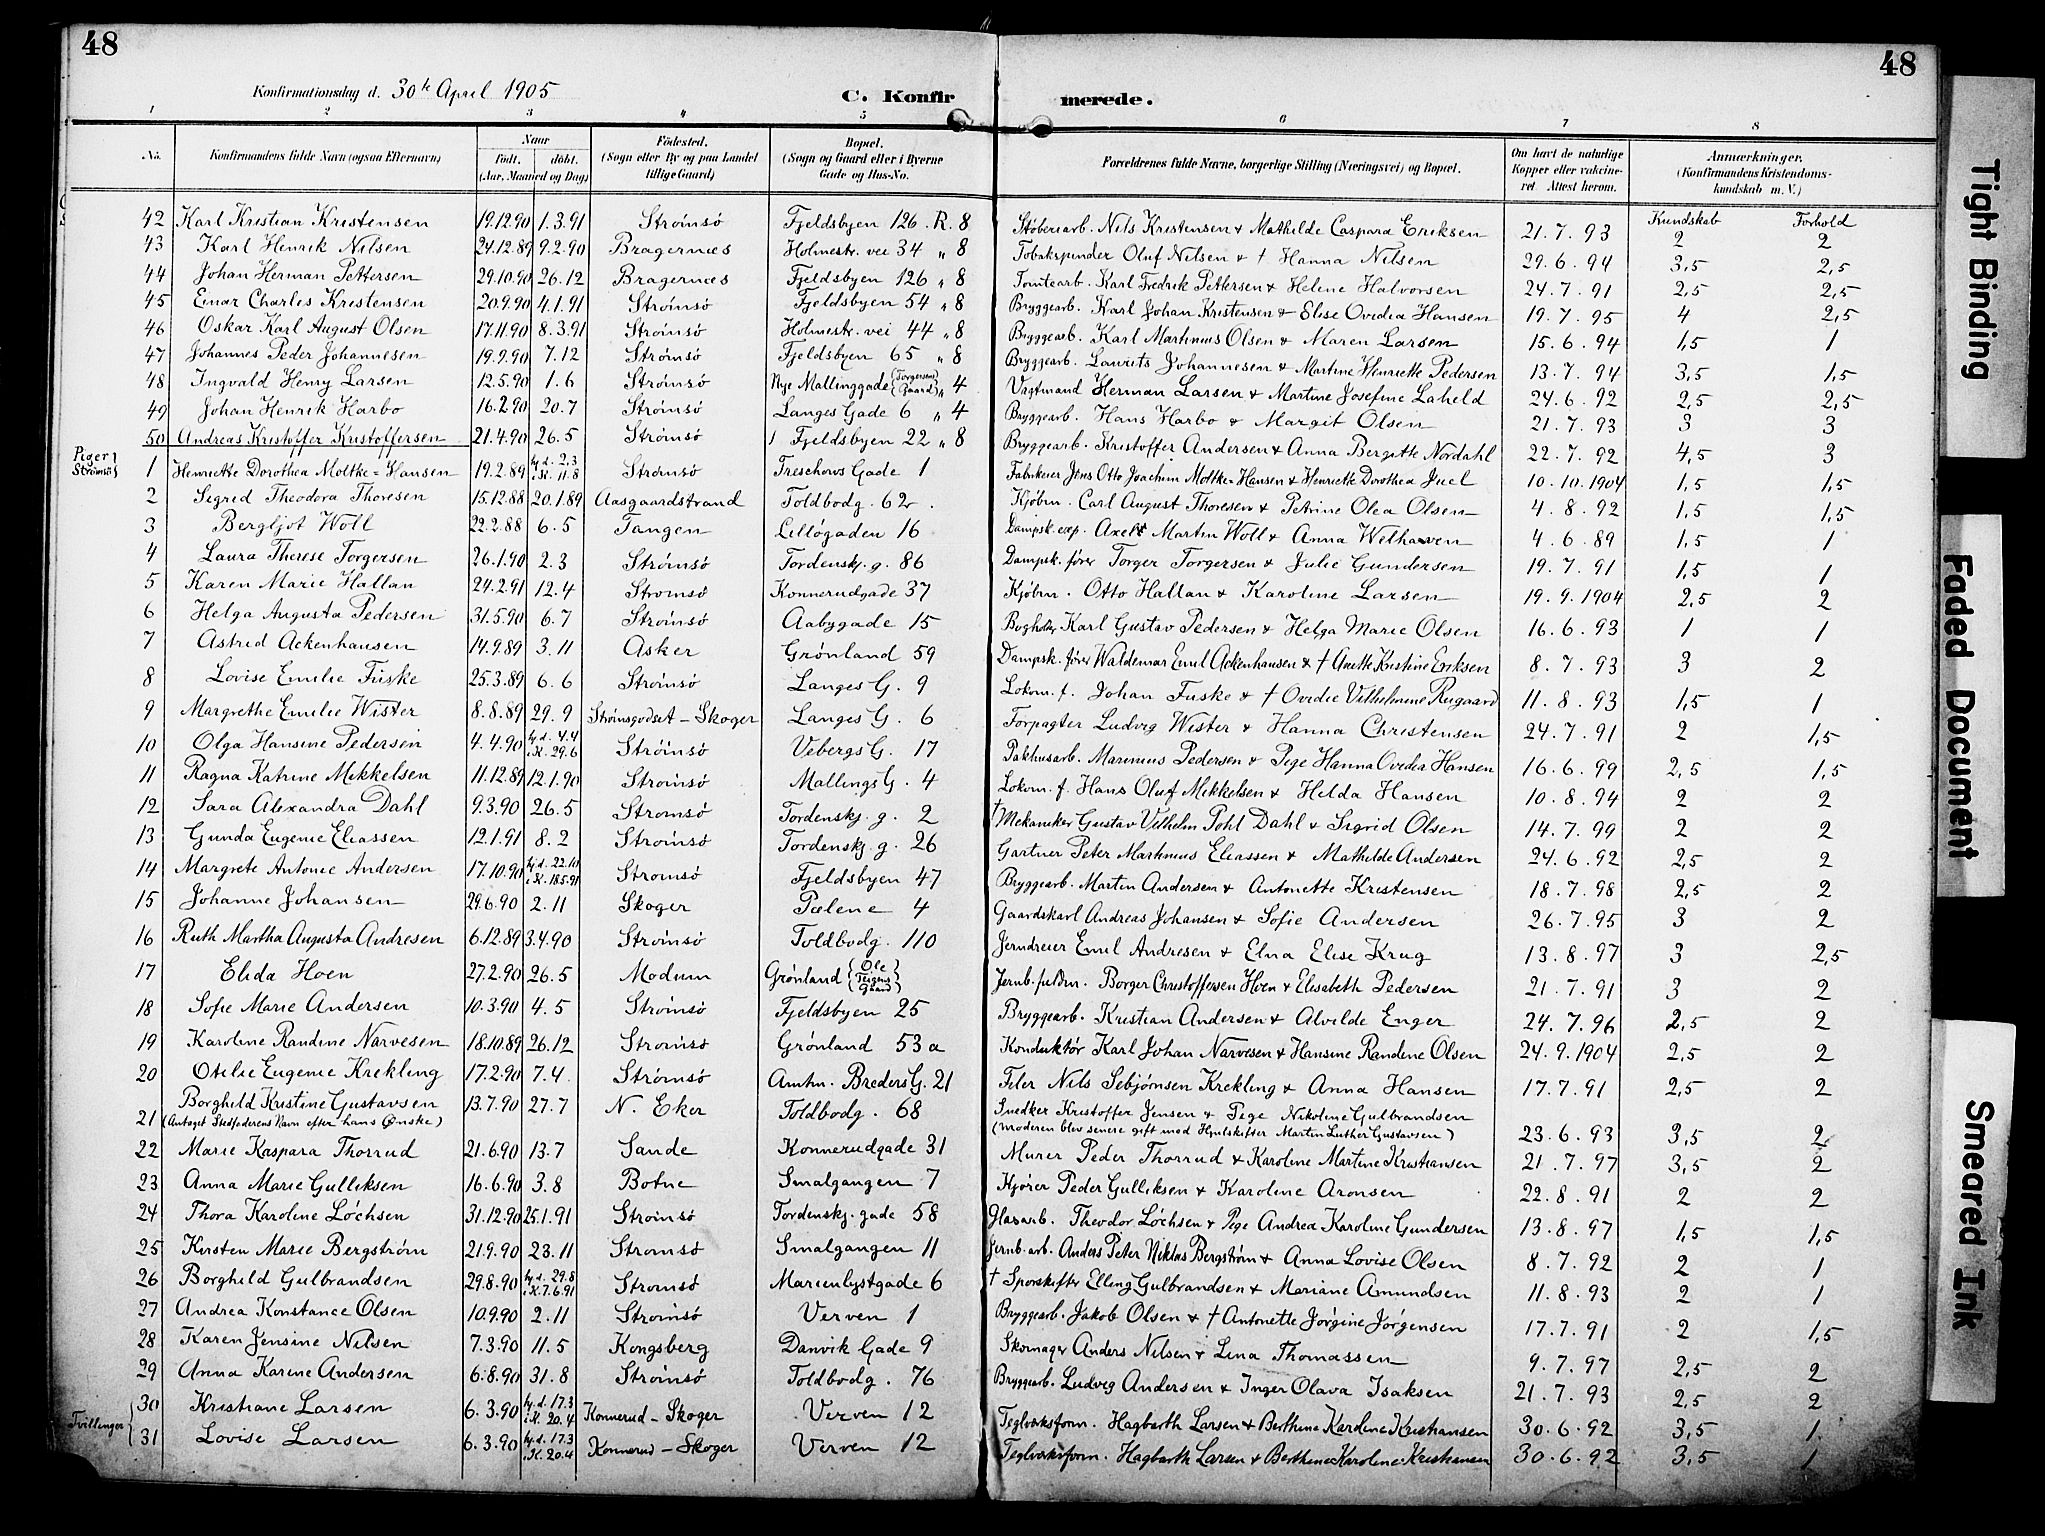 48
48
Konfirmationsdag d. 30te April 1905
C. Konfir merede.
1 2 3 4 5 6 7 8
No. Konfirmandens fulde Navn (ogsaa Efternavn) Naar Födt. döbt. (Aar, Maaned og Dag) Födested. (Sogn eller By og paa Landet tillige Gaard) Bopæl. (Sogn og Gaard eller i Byerne Gade og Hus-No. Forældrenes fulde Navne, borgerlige Stilling (Næringsvei) og Bopæl. Om havt de naturlige Kopper eller vakcineret. Attest herom. Anmærkninger. (Konfirmandens Kristendomskundskab m. V.)
Kundskab Forhold
42 Karl Kristian Kristensen 19.12.90 1.3.91 Strömsö Fjeldsbyen 126. R. 8 Støberiarb. Nils Kristensen & Mathilde Caspara Eriksen 21.7.93 2 2
43 Karl Henrik Nilsen 24.12.89 9.2.90 Bragernæs Holmestr. vei 34 " 8 Tobakspinder Oluf Nilsen & † Hanna Nilsen 29.6.94 3,5 2,5
44 Johan Herman Pettersen 29.10.90 26.12 Bragernæs Fjeldsbyen 126 " 8 Tomtearb. Karl Fredrik Pettersen & Helene Halvorsen 24.7.91 2,5 2,5
45 Einar Charles Kristensen 20.9.90 4.1.91 Strömsö Fjeldsbyen 54 " 8 Bryggearb. Karl Johan Kristensen & Elise Ovidia Hansen 19.7.95 4 2,5
46 Oskar Karl August Olsen 17.11.90 8.3.91 Strömsö Holmestr. vei 44 " 8 Bryggearb. Karl Martinius Olsen & Maren Larsen 15.6.94 1,5 1
47 Johannes Peder Johannesen 19.9.90 7.12 Strömsö Fjeldsbyen 65 " 8 Bryggearb. Laurits Johannesen & Martine Henriette Pedersen 13.7.94 3,5 1,5
48 Ingvald Henry Larsen 12.5.90 1.6 Strömsö Nye Mallinggade (Torgersen Gaard) " 4 Vagtmand Herman Larsen & Martine Josefine Laheld 24.6.92 2,5 2,5
49 Johan Henrik Harbo 16.2.90 20.7 Strömsö Langes Gade 6 " 4 Bryggearb. Hans Harbo & Margit Olsen 21.7.93 3 3
50 Andreas Kristoffer Kristoffersen 21.4.90 26.5 Strömsö Fjeldsbyen 22 " 8 Bryggearb. Kristoffer Andersen & Anna Bergitte Nordahl 22.7.92 4,5 3
Piger Strømsö
1 Henriette Dorothea Moltke-Hansen 19.2.89 hj.d. 2.3 i K. 11.8 Strömsö Treschows Gade 1 Fabrikeier Jens Otto Joachim Moltke-Hansen & Henriette Dorothea Juel 10.10.1904 1,5 1,5
2 Sigrid Theodora Thoresen 15.12.88 20.1.89 Aasgaardstrand Toldbodg. 62 Kjöbm. Carl August Thoresen & Petrine Olea Olsen 4.8.92 1,5 1,5
3 Bergljot Woll 22.2.88 6.5 Tangen Lillögaden 16 Dampsk. exp. Axel Martin Woll & Anna Welhaven 4.6.89 1,5 1
4 Laura Therese Torgersen 26.1.90 2.3 Strömsö Tordenskj. g. 86 Dampsk. fører Torger Torgersen & Julie Gundersen 19.7.91 1,5 1
5 Karen Marie Hallan 24.2.91 12.4 Strömsö Konnerudgade 37 Kjöbm. Otto Hallan & Karoline Larsen 19.9.1904 2,5 2
6 Helga Augusta Pedersen 31.5.90 6.7 Strömsö Aabygade 15 Bogholder Karl Gustav Pedersen & Helga Marie Olsen 16.6.93 1 1
7 Astrid Ackenhausen 14.9.89 3.11 Asker Grönland 59 Dampsk. fører Waldemar Emil Ackenhausen & † Anette Kristine Eriksen 8.7.93 3 2
8 Lovise Emilie Fuske 25.3.89 6.6 Strömsö Langes G. 9 Lokom. f. Johan Fuske & † Ovidie Vilhelmine Rugaard 11.8.93 1,5 1
9 Margrethe Emilie Wister 8.8.89 29.9 Strömsgodset - Skoger Langes G. 6 Forpagter Ludvig Wister & Hanna Christensen 24.7.91 2 1,5
10 Olga Hansine Pedersen 4.4.90 hj.d. 4.4 i K. 29.6 Strömsö Vebergs G. 17 Pakhusarb. Marinius Pedersen & Pige Hanna Ovidia Hansen 16.6.99 2,5 1,5
11 Ragna Katrine Mikkelsen 11.12.89 12.1.90 Strömsö Mallings G. 4 Lokom. f. Hans Oluf Mikkelsen & Hilda Hansen 10.8.94 2 2
12 Sara Alexandra Dahl 9.3.90 26.5 Strömsö Tordenskj. g. 2 † Mekaniker Gustav Vilhelm Pohl Dahl & Sigrid Olsen 14.7.99 2 2
13 Gunda Eugenie Eliassen 12.1.91 8.2 Strömsö Tordenskj. g. 26 Gartner Peter Martinius Eliassen & Mathilde Andersen 24.6.92 2,5 2
14 Margrete Antonie Andersen 17.10.90 hj.d. 22.10 i K. 18.5.91 Strömsö Fjeldsbyen 47 Bryggearb. Martin Andersen & Antonette Kristensen 18.7.98 2,5 2
15 Johanne Johansen 29.6.90 2.11 Skoger Pælene 4 Gaardskarl Andreas Johansen & Sofie Andersen 26.7.95 3 2
16 Ruth Martha Augusta Andresen 6.12.89 3.4.90 Strömsö Toldbodg. 110 Jerndreier Emil Andresen & Elna Elise Krug 13.8.97 3 2,5
17 Elida Hoen 27.2.90 26.5 Modum Grönland (Ole Gaard) Jernb. fuldm. Borger Christoffersen Hoen & Elisabeth Pedersen 21.7.91 3 2
18 Sofie Marie Andersen 10.3.90 4.5 Strömsö Fjeldsbyen 25 Bryggearb. Kristian Andersen & Alvilde Enger 24.7.96 2,5 2
19 Karoline Randine Narvesen 18.10.89 26.12 Strömsö Grönland 53 a Konduktör Karl Johan Narvesen & Hansine Randine Olsen 24.9.1904 2,5 2
20 Otilie Eugenie Krekling 17.2.90 7.4 Strömsö Amtm. Breders G. 21 Filer Nils Sebjørnsen Krekling & Anna Hansen 17.7.91 2,5 2
21 Borghild Kristine Gustavsen 13.7.90 27.7 N. Eker Toldbodg. 68 Snedker Kristoffer Jensen & Pige Nikoline Gulbrandsen 23.6.93 3,5 2
(Antaget Stedfaderens Navn efter hans Ønske) (Moderen blev senere gift med Hjulskifter Martin Luther Gustavsen)
22 Marie Kaspara Thorrud 21.6.90 13.7 Sande Konnerudgade 31 Murer Peder Thorrud & Karoline Martine Kristiansen 21.7.97 3,5 2
23 Anna Marie Gulliksen 16.6.90 3.8 Botne Smalgangen 7 Kjører Peder Gulliksen & Karoline Aronsen 22.8.91 2 2
24 Thora Karoline Löchsen 31.12.90 25.1.91 Strömsö Tordenskj. gade 58 Glasarb. Theodor Löchsen & Pige Andrea Karoline Gundersen 13.8.97 1,5 1,5
25 Kirsten Marie Bergström 21.9.90 23.11 Strömsö Smalgangen 11 Jernb. arb. Anders Peter Niklas Bergström & Anna Lovise Olsen 8.7.92 2 1
26 Borghild Gulbrandsen 29.8.90 hj.d. 29.8 i K. 7.6.91 Strömsö Marienlystgade 6 † Sporskifter Elling Gulbrandsen & Mariane Amundsen 11.8.93 2 1
27 Andrea Konstance Olsen 10.9.90 2.11 Strömsö Verven 1 Bryggearb. Jakob Olsen & † Antonette Jörgine Jörgensen 17.7.91 2 1,5
28 Karen Jensine Nilsen 7.3.90 11.5 Kongsberg Danvik Gade 9 Skomager Anders Nilsen & Lina Thomassen 9.7.97 2,5 2
29 Anna Karine Andersen 6.8.90 31.8 Strömsö Toldbodg. 76 Bryggearb. Ludvig Andersen & Inger Olava Isaksen 21.7.93 2,5 2
Tvillinger
30 Kristiane Larsen 6.3.90 hj.d. 17.3 i K. 20.4 Konnerud - Skoger Verven 12 Teglværksform. Hagbarth Larsen & Berthine Karoline Kristiansen 30.6.92 3,5 1
31 Lovise Larsen 6.3.90 hj.d. 17.3 i K. 20.4 Konnerud - Skoger Verven 12 Teglværksform. Hagbarth Larsen & Berthine Karoline Kristiansen 30.6.92 3,5 1
Tight Binding
Faded Document
Smeared Ink